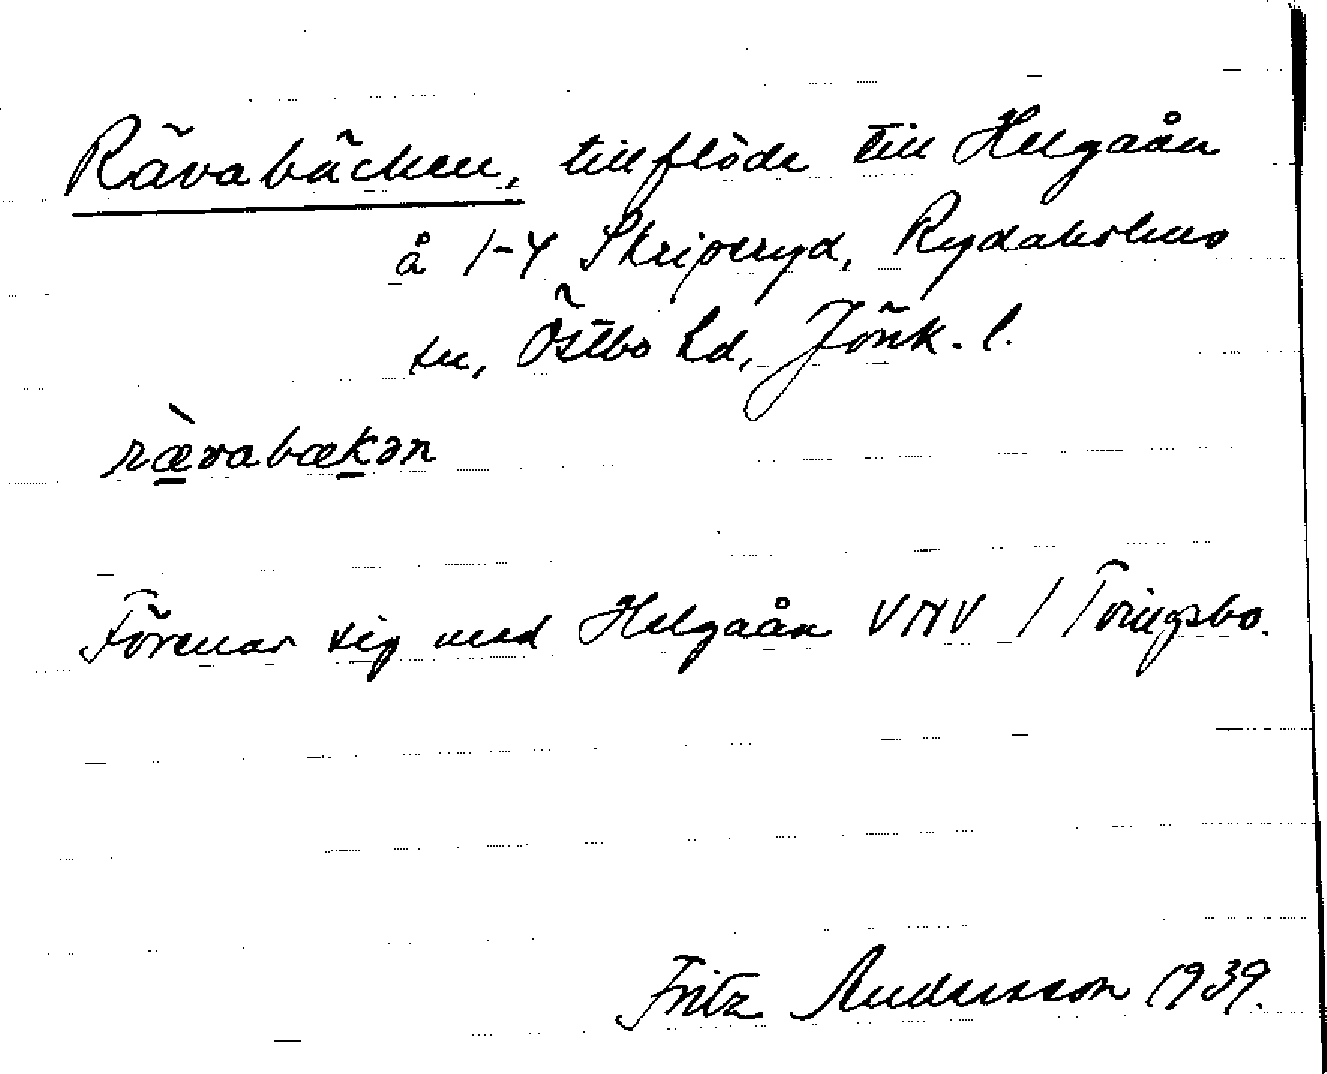 Rävabäcken, tillflöde till Helgaån
å 1-4 Skriperyd, Rydaholms
sn, Östbo hd, Jönk. l.
rævabækən
Förenar sig med Helgaån VNV / Toringsbo.
Fritz Andersson 1939.